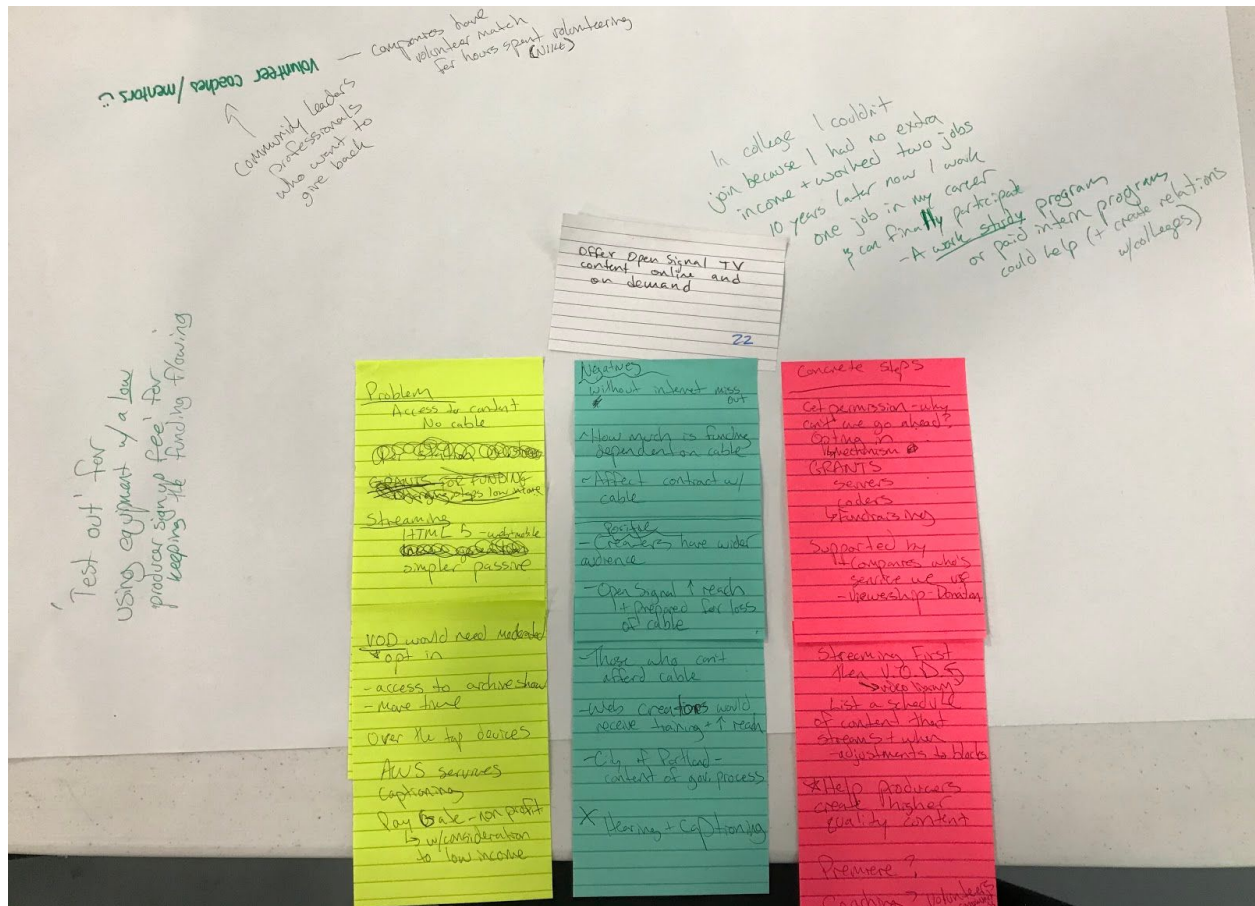 Volunteer coaches/mentors :)
— companies have
volunteer match
for hours spent volunteering
(NIKE)
community leaders
professionals
who want to
give back
In college I couldn't
join because I had no extra
income + worked two jobs
10 years later now I work
one job in my career
& can finally participate
- A work study program
or paid intern program
could help (+ create relations
w/colleges)
'Test out' for
using equipment w/ a low
producer signup 'fee' for
keeping the funding flowing
Offer Open Signal TV
content online and
on demand
22
Problem
Access to content
No cable
GRANTS FOR FUNDING
Streaming
HTML 5
simpler passive
VOD would need moderated
opt in
- access to archive show
- more time
Over the top devices
AWS services
Captioning
Pay Gate - non profit
↳ w/consideration
to low income
Negatives
without internet miss
out
- How much is funding
dependent on cable
- Affect contract w/
cable
Positive
- Creators have wider
audience
- Open Signal ↑ reach
+ prepared for loss
of cable
- Those who can't
afford cable
- Web creators would
receive training + ↑ reach
- City of Portland -
content of gov. process
* Hearing + Captioning
Concrete steps
Get permission - why
can't we go ahead?
Opting in
GRANTS
servers
coders
↳ fundraising
Supported by
+ Companies who's
service we use
- viewership - Donation
Streaming First
then V.O.D.
→ video library
List a schedule
of content that
streams + when
- adjustments to blocks
* Help producers
create higher
quality content
Premiere?
Coaching? Volunteers